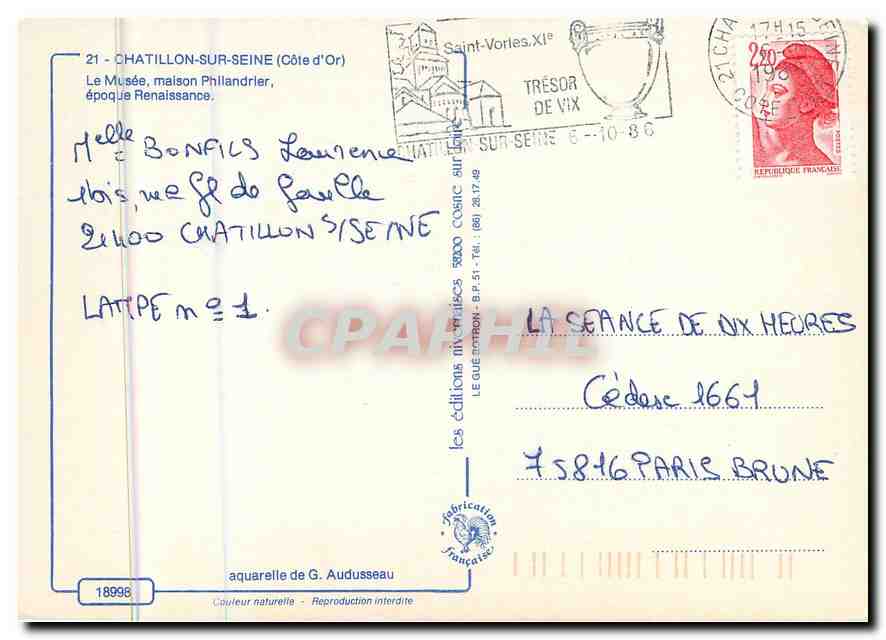 21 - CHATILLON-SUR-SEINE (Côte d'Or)
Le Musée, maison Philandrier,
époque Renaissance.
Melle BONFILS Laurence
1bis, rue Gl de Gaulle
21400 CHATILLON S/SEINE
LAMPE no 1.
Saint-Vorles.XIe
TRÉSOR
DE VIX
CHATILLON-SUR-SEINE 6--10-86
17H15
6-
198
21 CHA
SEINE
COTE
2,20
POSTES
REPUBLIQUE FRANÇAISE
les éditions nivernaises 58200 cosne sur loire
LE GUÉ BOTRON - B.P. 51 - Tél. : (86) 28.17.49
CPAPHIL
LA SEANCE DE DIX HEURES
Cédex 1661
75816 PARIS BRUNE
fabrication
française
aquarelle de G. Audusseau
18998
Couleur naturelle - Reproduction interdite